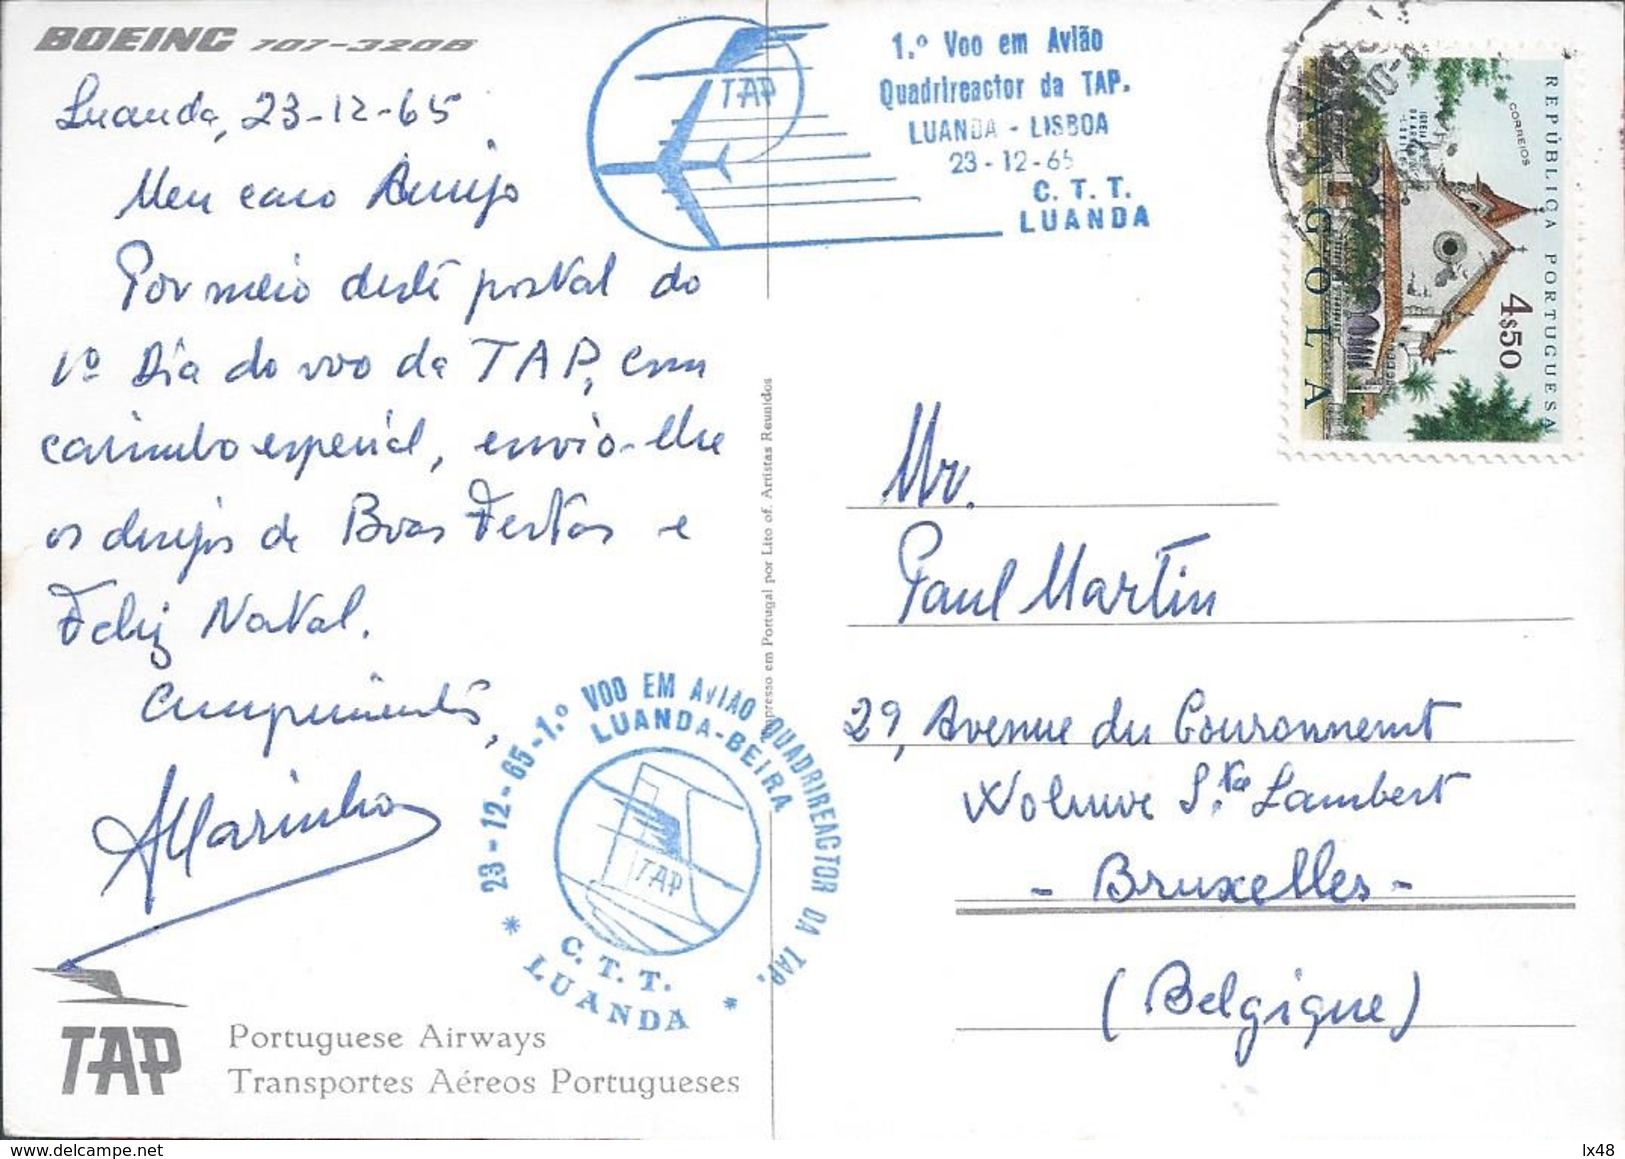 BOEING 707-320B
Luanda, 23-12-65
Meu caro Amigo
Por meio deste postal do
1º Dia do voo da TAP, com
carimbo especial, envio-lhe
os desejos de Boas Festas e
Feliz Natal.
Cumprimentos,
AMarinho
TAP
Portuguese Airways
Transportes Aéreos Portugueses
TAP
1.º Voo em Avião
Quadrireactor da TAP.
LUANDA - LISBOA
23-12-65
C. T. T.
LUANDA
23-12-65-1.º VOO EM AVIÃO QUADRIREACTOR DA TAP.
LUANDA-BEIRA
TAP
C. T. T.
* LUANDA *
Impresso em Portugal por Lito of. Artistas Reunidos
REPÚBLICA PORTUGUESA
CORREIOS
4$50
ANGOLA
Mr.
Paul Martin
29, Avenue du Couronnemt
Woluwe S.te Lambert
- Bruxelles -
(Belgique)
lx48